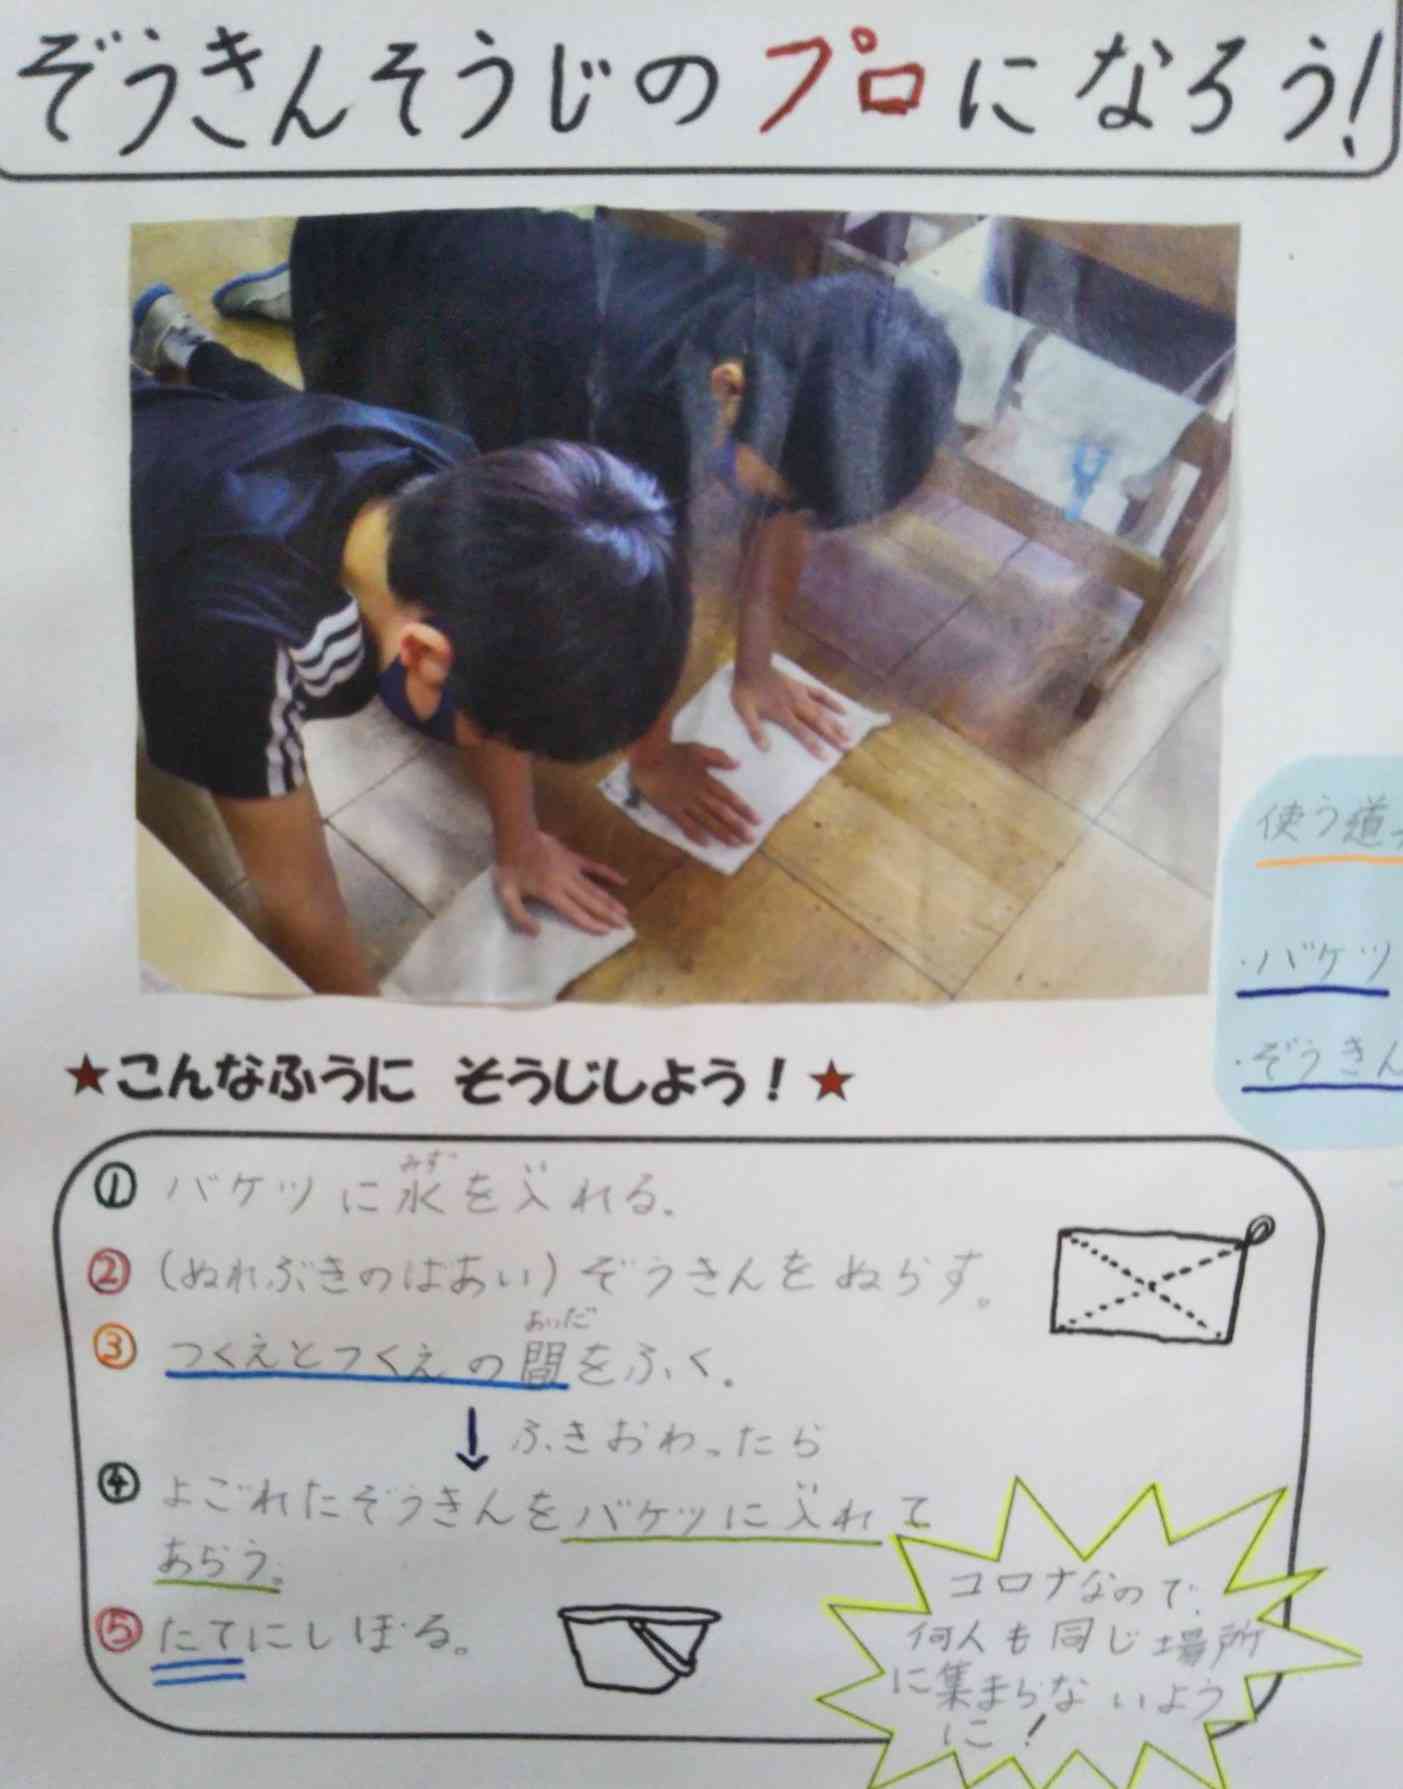 ぞうきんそうじのプロになろう!
使う道
・バケツ
・ぞうきん
★こんなふうに そうじしよう!★
① バケツに水を入れる。
みず
② (ぬれぶきのばあい) ぞうきんをぬらす。
③ つくえとつくえの間をふく。
あいだ
↓ ふきおわったら
④ よごれたぞうきんをバケツに入れて
あらう。
⑤ たてにしぼる。
コロナなので、
何人も同じ場所
に集まらないよう
に!